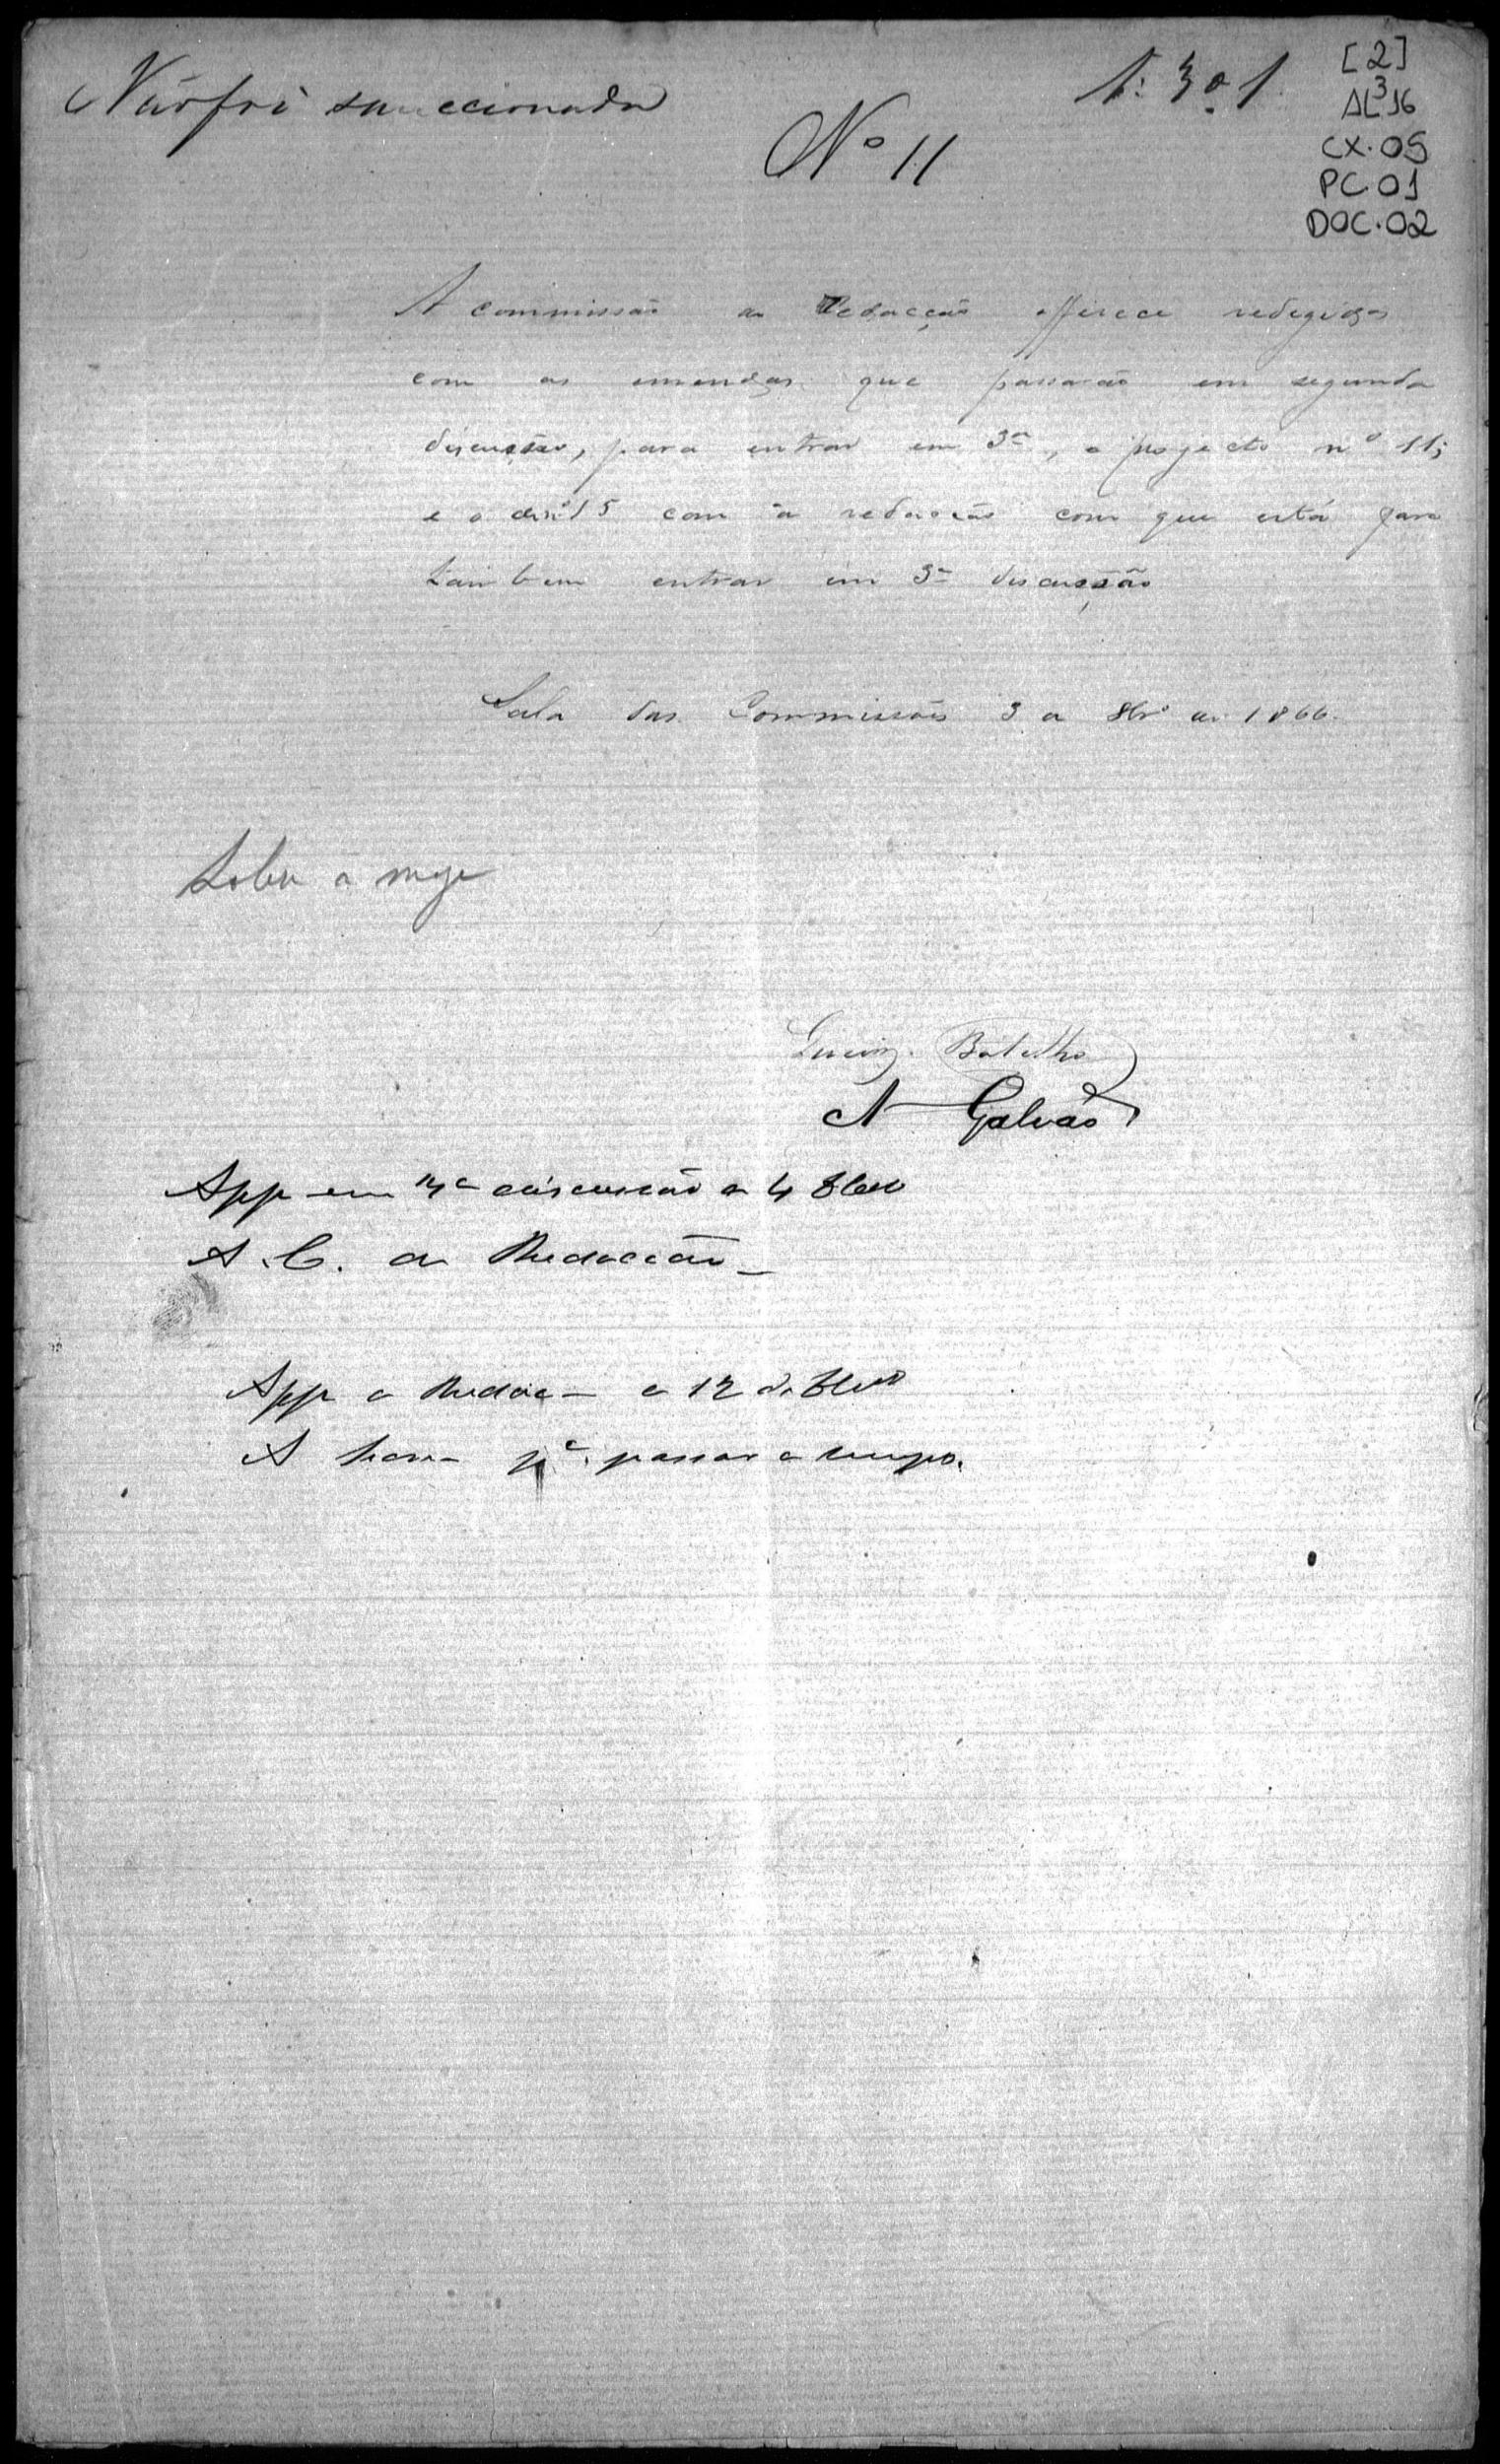 Não foi sanccionada
Nº 11
[2]
AL³16
CX.05
PC.01
DOC.02
A commissão de Redacção offerece redigidos
com as emendas que passarão em segunda
discussão, para entrar em 3ª, o projecto nº 11;
e o de nº 15 com a redacção com que está para
tambem entrar em 3ª discussão
Sala das Commissões 3 de 8brº de 1866.
Sobre a mesa
Botelho
A Galvão
App em 3ª discussão a 4 8bro
A C. de Redacção
App a Redac a 12 de 8bro
A passar a limpo.